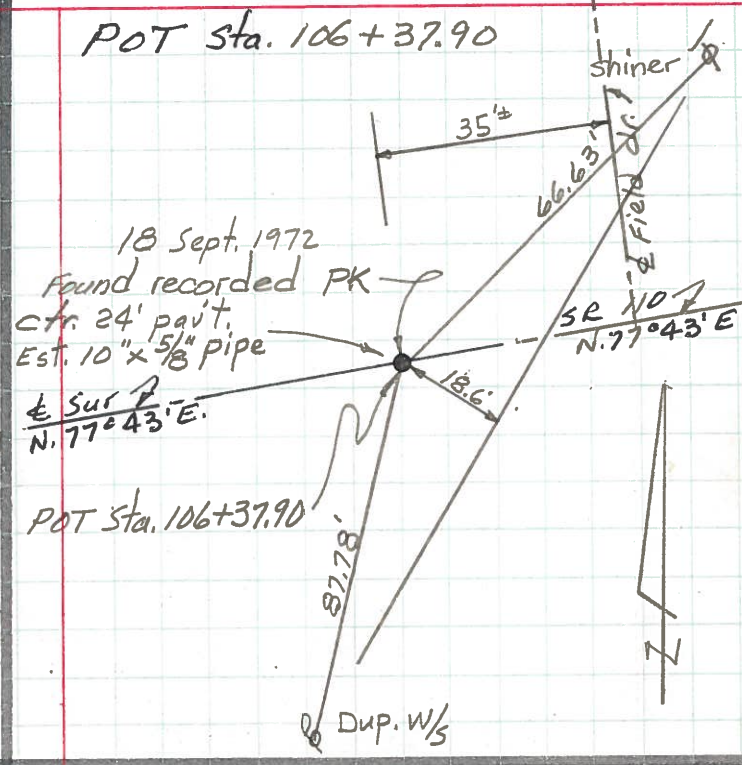 POT Sta. 106+37.90
shiner
35'±
66.63'
℄ Field dr.
18 Sept. 1972
Found recorded PK
ctr. 24' pav't.
Est. 10" x 5/8" pipe
SR 110
N. 77°43' E
℄ Sur
N. 77°43' E.
18.6'
POT Sta. 106+37.90
87.78'
Z
Dup. W/s